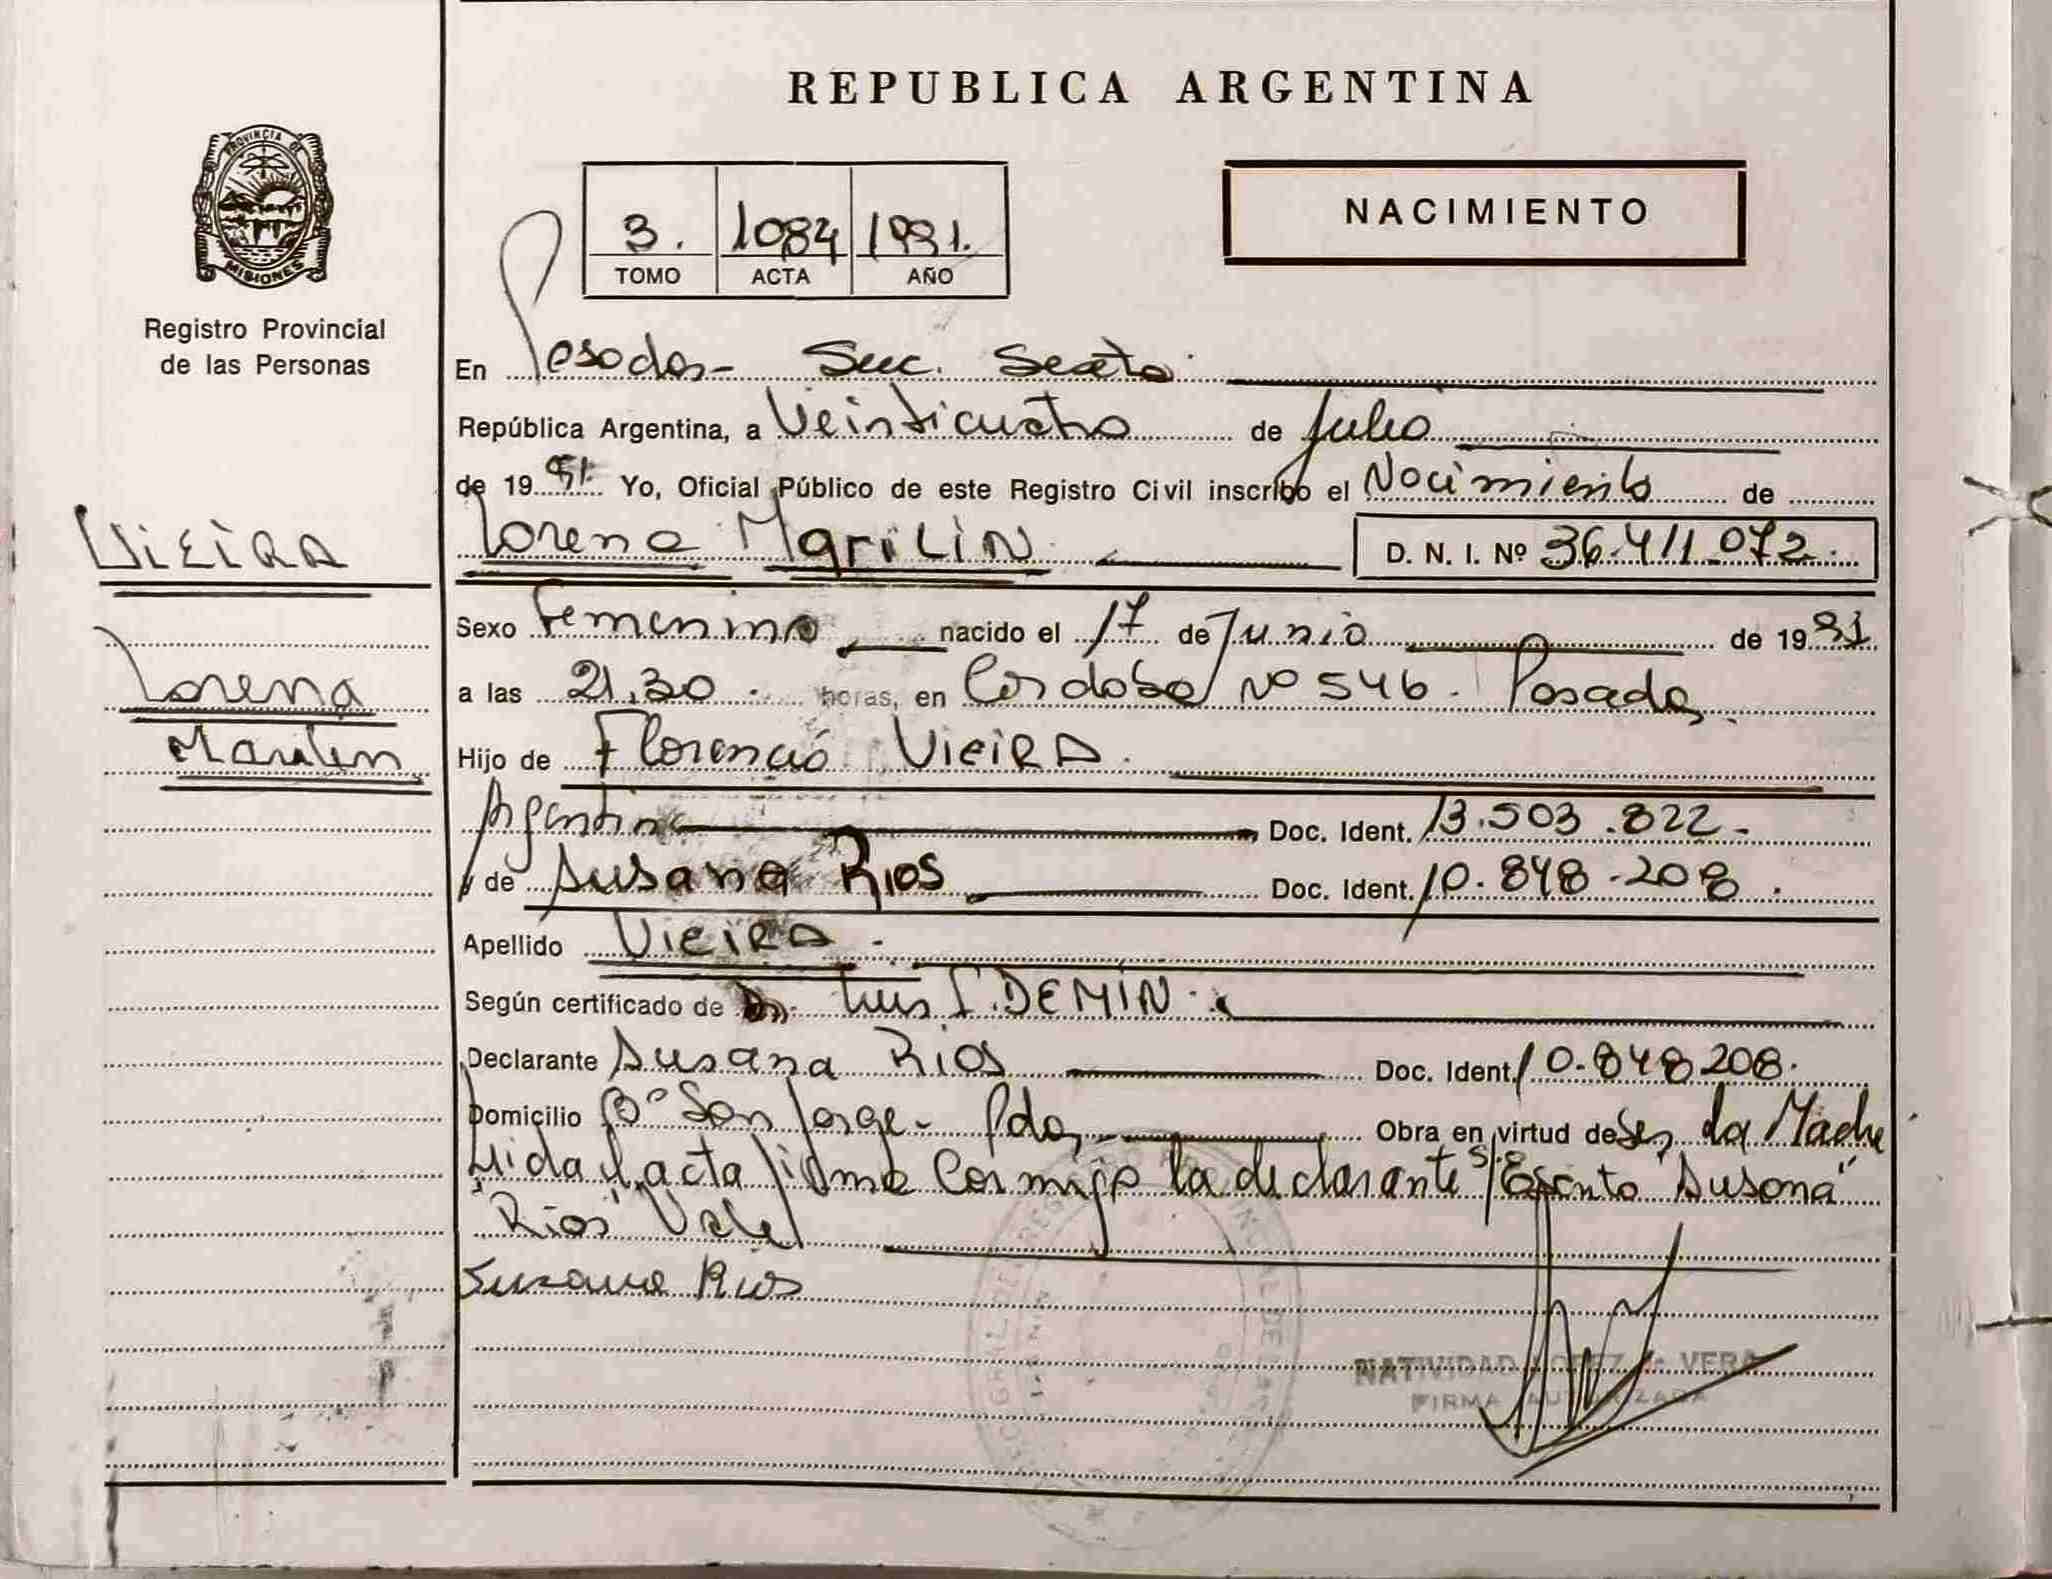 REPUBLICA ARGENTINA
PROVINCIA DE
MISIONES
Registro Provincial
de las Personas
3. 1084 1991.
TOMO ACTA AÑO
NACIMIENTO
En Posadas- Suc. Sexta
República Argentina, a Veinticuatro de Julio
de 1991. Yo, Oficial Público de este Registro Civil inscribo el Nacimiento de
Lorena Marilin D. N. I. Nº 36.411.072.
VIEIRA
Lorena
Marilin
Sexo Femenino nacido el 17 de Junio de 1991
a las 21,30 horas, en Cordoba Nº 546. Posadas
Hijo de Florencio Vieira
Argentina Doc. Ident. 13.503.822-
y de Susana Rios Doc. Ident. 10.848.208.
Apellido Vieira.
Según certificado de Dr. Luis I. DEMIN.
Declarante Susana Rios Doc. Ident. 10.848.208.
Domicilio Bº San Jorge- Pdas Obra en virtud de Ser la Madre
Leida el acta firma Conmigo la declarante S/ Escrito "Susana"
"Rios" Vale
Susana Rios
NATIVIDAD LOPEZ de VERA
FIRMA AUTORIZADA